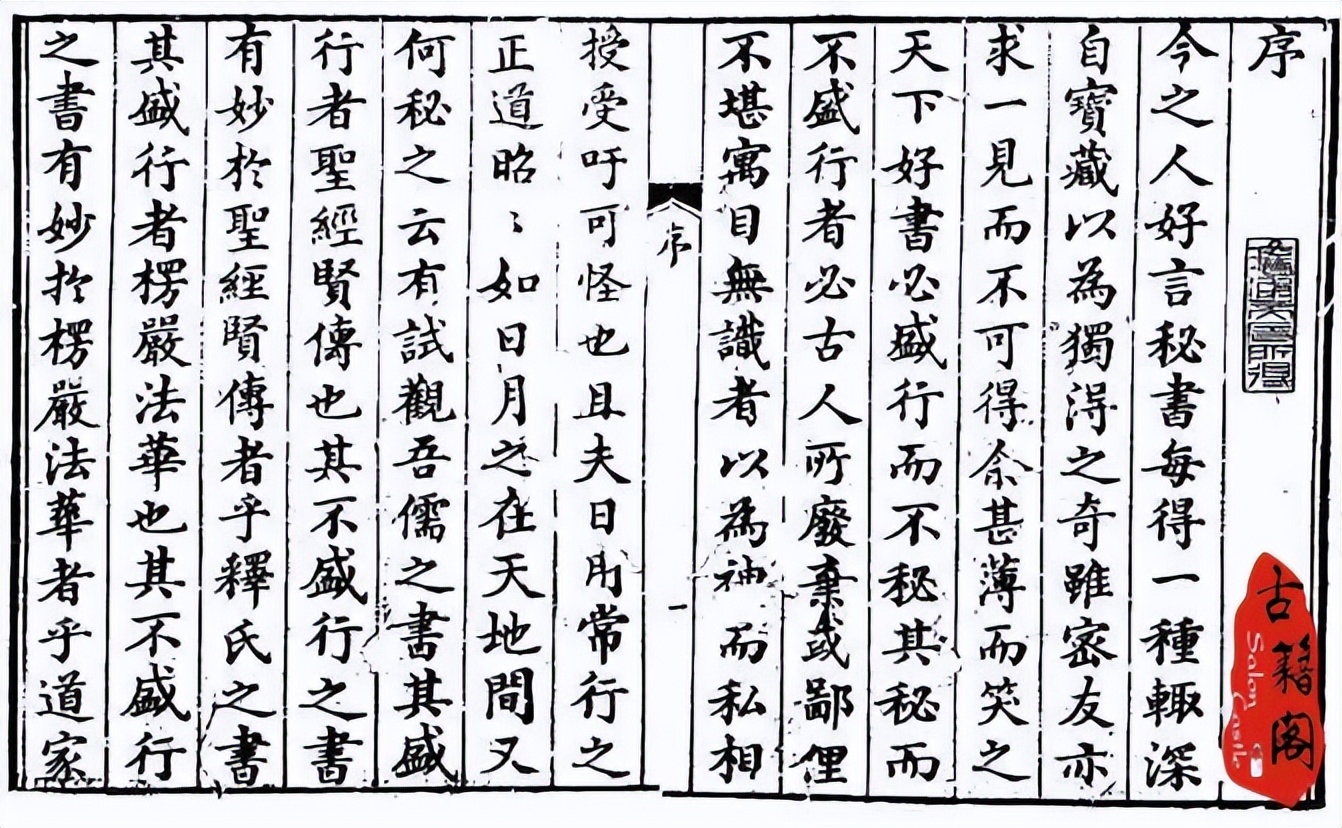 序
今之人好言秘書每得一種輙深
自寶藏以為獨淂之奇雖密友亦
求一見而不可得余甚薄而笑之
天下好書必盛行而不秘其秘而
不盛行者必古人所廢棄或鄙俚
不堪寓目無識者以為神而私相
序
一
授受吁可怪也且夫日用常行之
正道昭〻如日月之在天地間又
何秘之云有試觀吾儒之書其盛
行者聖經賢傳也其不盛行之書
有妙於聖經賢傳者乎釋氏之書
其盛行者楞嚴法華也其不盛行
之書有妙於楞嚴法華者乎道家
古籍閣
Salon